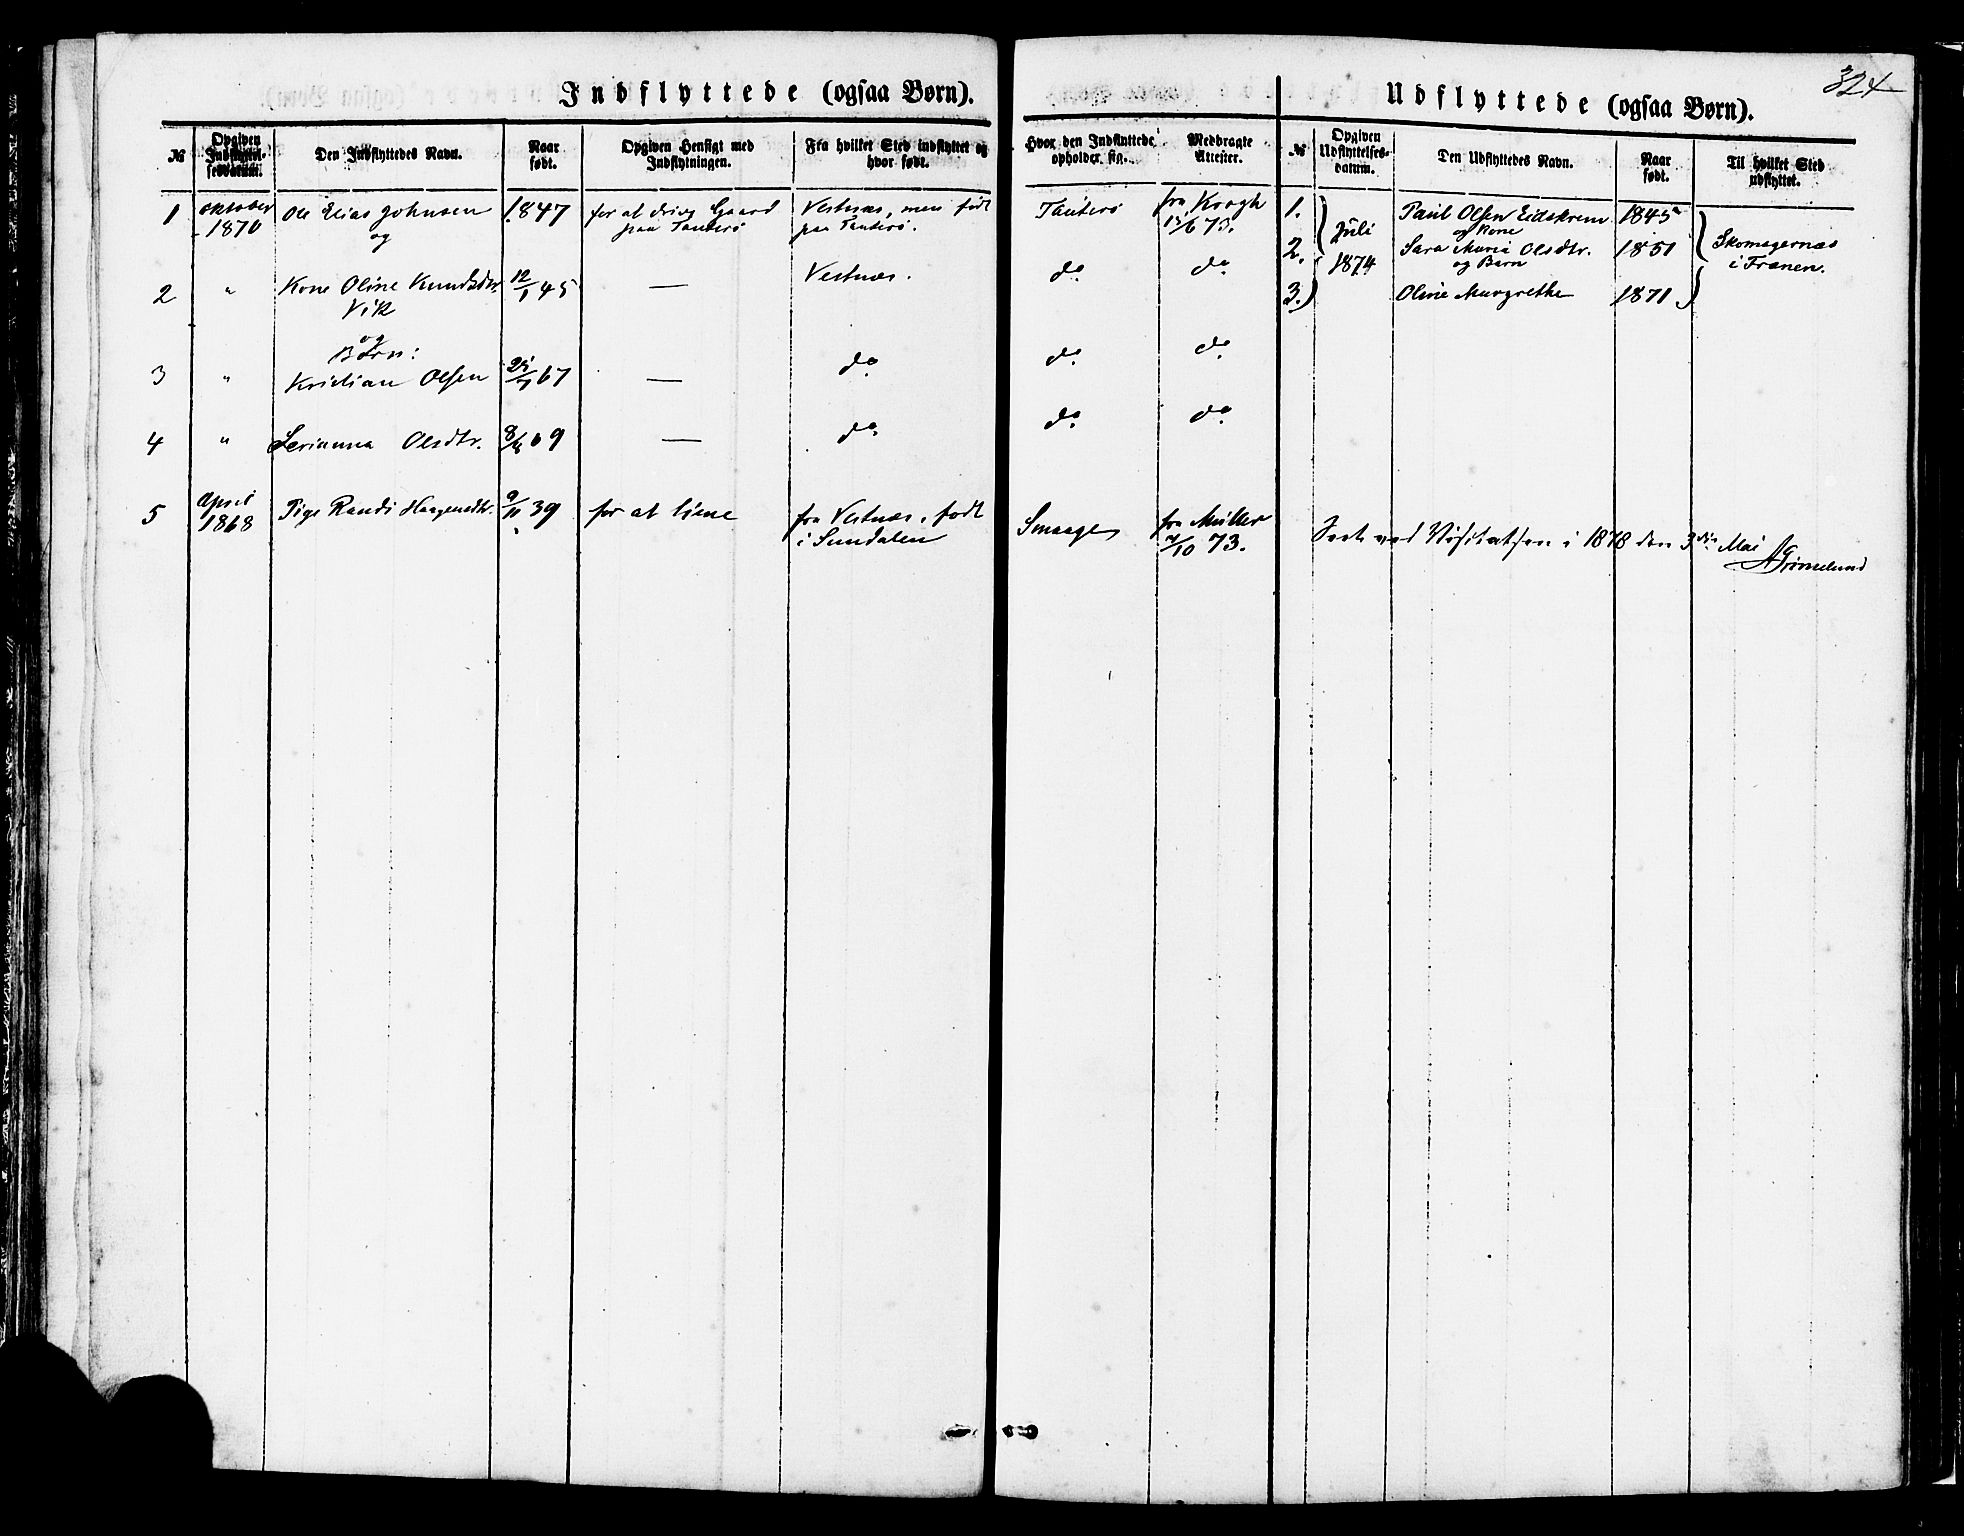 324
Indflyttede (ogsaa Børn).
№ | Opgiven Indflyttelsesdatum. | Den Indflyttedes Navn. | Naar født. | Opgiven Hensigt med Indflytningen. | Fra hvilket Sted indflyttet og hvor født. | Hvor den Indflyttede opholder sig. | Medbragte Attester.
1 | Oktober 1870 | Ole Elias Johnsen og | 1847 | for at drive Gaard paa Tauterø | Vestnæs, men født paa Tauterø. | Tauterø | fra Krogh 15/6 73.
2 | " | Kone Oline Knudsdtr. Vik | 12/1 45 | — | Vestnæs. | do. | do.
og Børn:
3 | " | Kristian Olsen | /7 67 | — | do. | do. | do.
4 | " | Serianna Olsdtr. | 69 | — | do. | do. | do.
5 | April 1868 | Pige Randi Haagensdtr. | 9/11 39 | for at tjene | fra Vestnæs, født i Sundalen | Smaage | fra Müller /10 73.
Udflyttede (ogsaa Børn).
№ | Opgiven Udflyttelsesdatum. | Den Udflyttedes Navn. | Naar født. | Til hvilket Sted udflyttet.
1. | Juli 1874 | Paul Olsen Eidskrem | 1845 | Skomagernæs i Frænen.
og Kone
2. | Sara Maria Olsdtr. | 1851
og Barn
3. | Oline Margrethe | 1871
Seet ved Visitatsen i 1878 den 3die Mai
AGrimelund